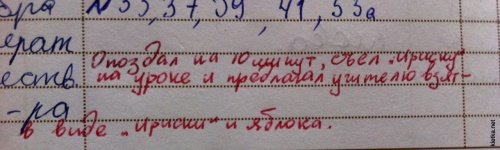 бра №35, 37, 39, 41, 53а
ерат
еств.
-ра
Опоздал на 10 минут, съел „ириску"
на уроке и предлагал учителю взят-
в виде „ириски" и яблока.